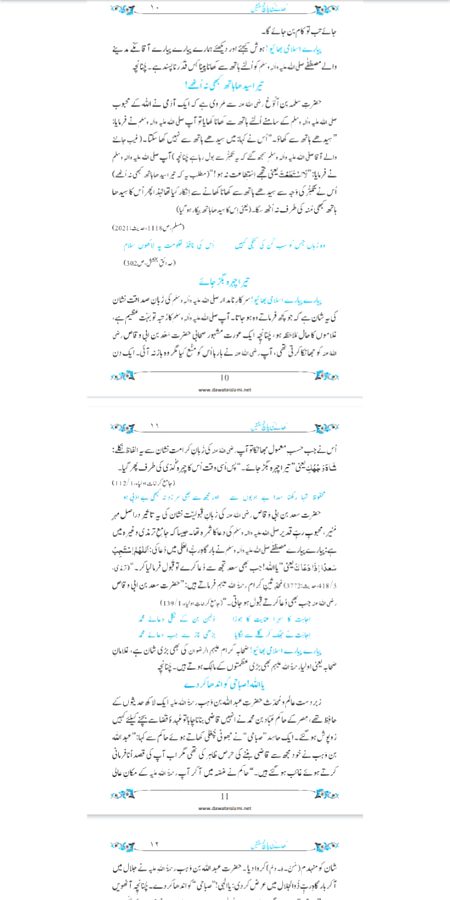 ۱۰
جائے تب تو کام بن جائے گا۔
پیارے اسلامی بھائیو! ہوش کیجئے اور دیکھئے ہمارے پیارے پیارے آقا مکے مدینے
والے مصطفٰے صلی اللہ علیہ واٰلہ وسلم کو اُلٹے ہاتھ سے کھانا پینا کس قدر ناپسند ہے۔ چُنانچِہ
تیرا سیدھا ہاتھ کبھی نہ اُٹھے!
حضرتِ سلمہ بن اَکْوَع رضی اللہ عنہ سے مروی ہے کہ ایک آدمی نے اللہ کے محبوب
صلی اللہ علیہ واٰلہ وسلم کے سامنے اُلٹے ہاتھ سے کھانا کھایا تو آپ صلی اللہ علیہ واٰلہ وسلم نے فرمایا:
”سیدھے ہاتھ سے کھاؤ۔“ اُس نے کہا: میں سیدھے ہاتھ سے نہیں کھا سکتا۔ (غیب جاننے
والے آقا صلی اللہ علیہ واٰلہ وسلم سمجھ گئے کہ یہ تکبُّر سے بول رہا ہے چنانچہ) آپ صلی اللہ علیہ واٰلہ وسلم
نے فرمایا: ”لَا اسْتَطَعْتَ یعنی تجھے اِستطاعت نہ ہو!“ (مطلب یہ کہ تیرا سیدھا ہاتھ کبھی نہ اُٹھے)
اُس نے تکبُّر کی وجہ سے سیدھے ہاتھ سے کھانا کھانے سے اِنکار کیا تھا لہٰذا پھر اُس کا سیدھا
ہاتھ کبھی مُنہ کی طرف نہ اُٹھ سکا۔ (یعنی اس کا سیدھا ہاتھ بیکار ہو گیا)
(مسلم، ص1118، حدیث: 2021)
وہ زباں جس کو سب کُن کی کنجی کہیں اس کی نافذ حکومت پہ لاکھوں سلام
(حدائقِ بخشش، ص302)
تیرا چہرہ بگڑ جائے
پیارے پیارے اسلامی بھائیو! سرکارِ نامدار صلی اللہ علیہ واٰلہ وسلم کی زبانِ صداقت نشان
کی یہ شان ہے کہ جو کچھ فرماتے وہ ہو جاتا۔ آپ صلی اللہ علیہ واٰلہ وسلم کا رُتبہ تو بَہُت عظیم ہے،
غلاموں کا حال مُلاحَظہ ہو، چُنانچِہ ایک عورت مشہور صحابی حضرت سَعْد بن ابی وقاص رضی
اللہ عنہ کو جھانکا کرتی تھی، آپ رضی اللہ عنہ نے بارہا اُس کو مَنْع کیا مگر وہ باز نہ آئی۔ ایک دن
10
www.dawateislami.net
۱۱
اُس نے جب حسبِ معمول جھانکا تو آپ رضی اللہ عنہ کی زبانِ کرامت نشان سے یہ الفاظ نکلے:
شَاہَ وَجْھُکِ یعنی ”تیرا چہرہ بگڑ جائے۔“ پس اُسی وقت اُس کا چہرہ گُدّی کی طرف پھر گیا۔
(جامع کرامات اولیاء، 1/112)
محفوظ شہا رکھنا سدا بے ادبوں سے اور مجھ سے بھی سرزد نہ کبھی بے ادبی ہو
حضرت سعد بن ابی وقاص رضی اللہ عنہ کی زبانِ قبولیّت نشان کی یہ تاثیر دراصل مہرِ
مُنیر، محبوبِ ربِّ قدیر صلی اللہ علیہ واٰلہ وسلم کی دعا کا ثمرہ تھا۔ جیسا کہ جامع ترمذی وغیرہ میں
ہے: پیارے پیارے مصطفٰے صلی اللہ علیہ واٰلہ وسلم نے بارگاہِ ربِّ اعلٰی میں دُعا کی: اَللّٰھُمَّ اسْتَجِبْ
لِسَعْدٍ اِذَا دَعَاکَ یعنی ”یااللہ! جب بھی سعد تجھ سے دُعا کرے تو قبول فرمایا کر۔“ (ترمذی،
5/418، حدیث: 3772) مُحَدِّثینِ کرام رحمۃ اللہ علیہم فرماتے ہیں: ”حضرت سعد بن ابی وقاص
رضی اللہ عنہ جب بھی دُعا کرتے قبول ہو جاتی۔“ (جامع کرامات اولیاء، 1/139)
اجابت کا سہرا عنایت کا جوڑا دُلہن بن کے نکلی دعائے محمد
اجابت نے جھک کر گلے سے لگایا بڑھی ناز سے جب دعائے محمد
پیارے پیارے اسلامی بھائیو! صَحابۂ کرام علیہمُ الرِّضوان کی بھی بڑی شان ہے، غلامانِ
صحابہ یعنی اولیاء رحمۃ اللہ علیہم بھی بڑی عظمتوں کے مالک ہوتے ہیں۔ چُنانچِہ
یااللہ! صباحی کو اندھا کر دے
زبردست عالم و محدّث حضرت عبداللہ بن وَہب رحمۃ اللہ علیہ ایک لاکھ حدیثوں کے
حافِظ تھے، مصر کے حاکم عبّاد بن محمد نے انہیں قاضی بنانا چاہا تو عُہدۂ قضا سے بچنے کیلئے کہیں
روپوش ہو گئے۔ ایک حاسد ”صباحی“ نے جھوٹی چُغلی کھاتے ہوئے حاکم سے کہا: ”عبداللہ
بن وَہب نے خود مجھ سے قاضی بننے کی حرص ظاہر کی تھی مگر اب آپ کی قصداً نافرمانی
کرتے ہوئے غائب ہو گئے ہیں۔“ حاکم نے غصّے میں آ کر آپ رحمۃ اللہ علیہ کے مکانِ عالی
11
www.dawateislami.net
۱۲
شان کو منہدم (مُن۔ہَ۔دِم) کروا دیا۔ حضرت عبداللہ بن وہب رحمۃ اللہ علیہ نے جلال میں
آ کر بارگاہِ ربِّ ذُوالجلال میں عرض کر دی: یاالٰہی! ”صباحی“ کو اندھا کر دے۔ چُنانچِہ آٹھویں